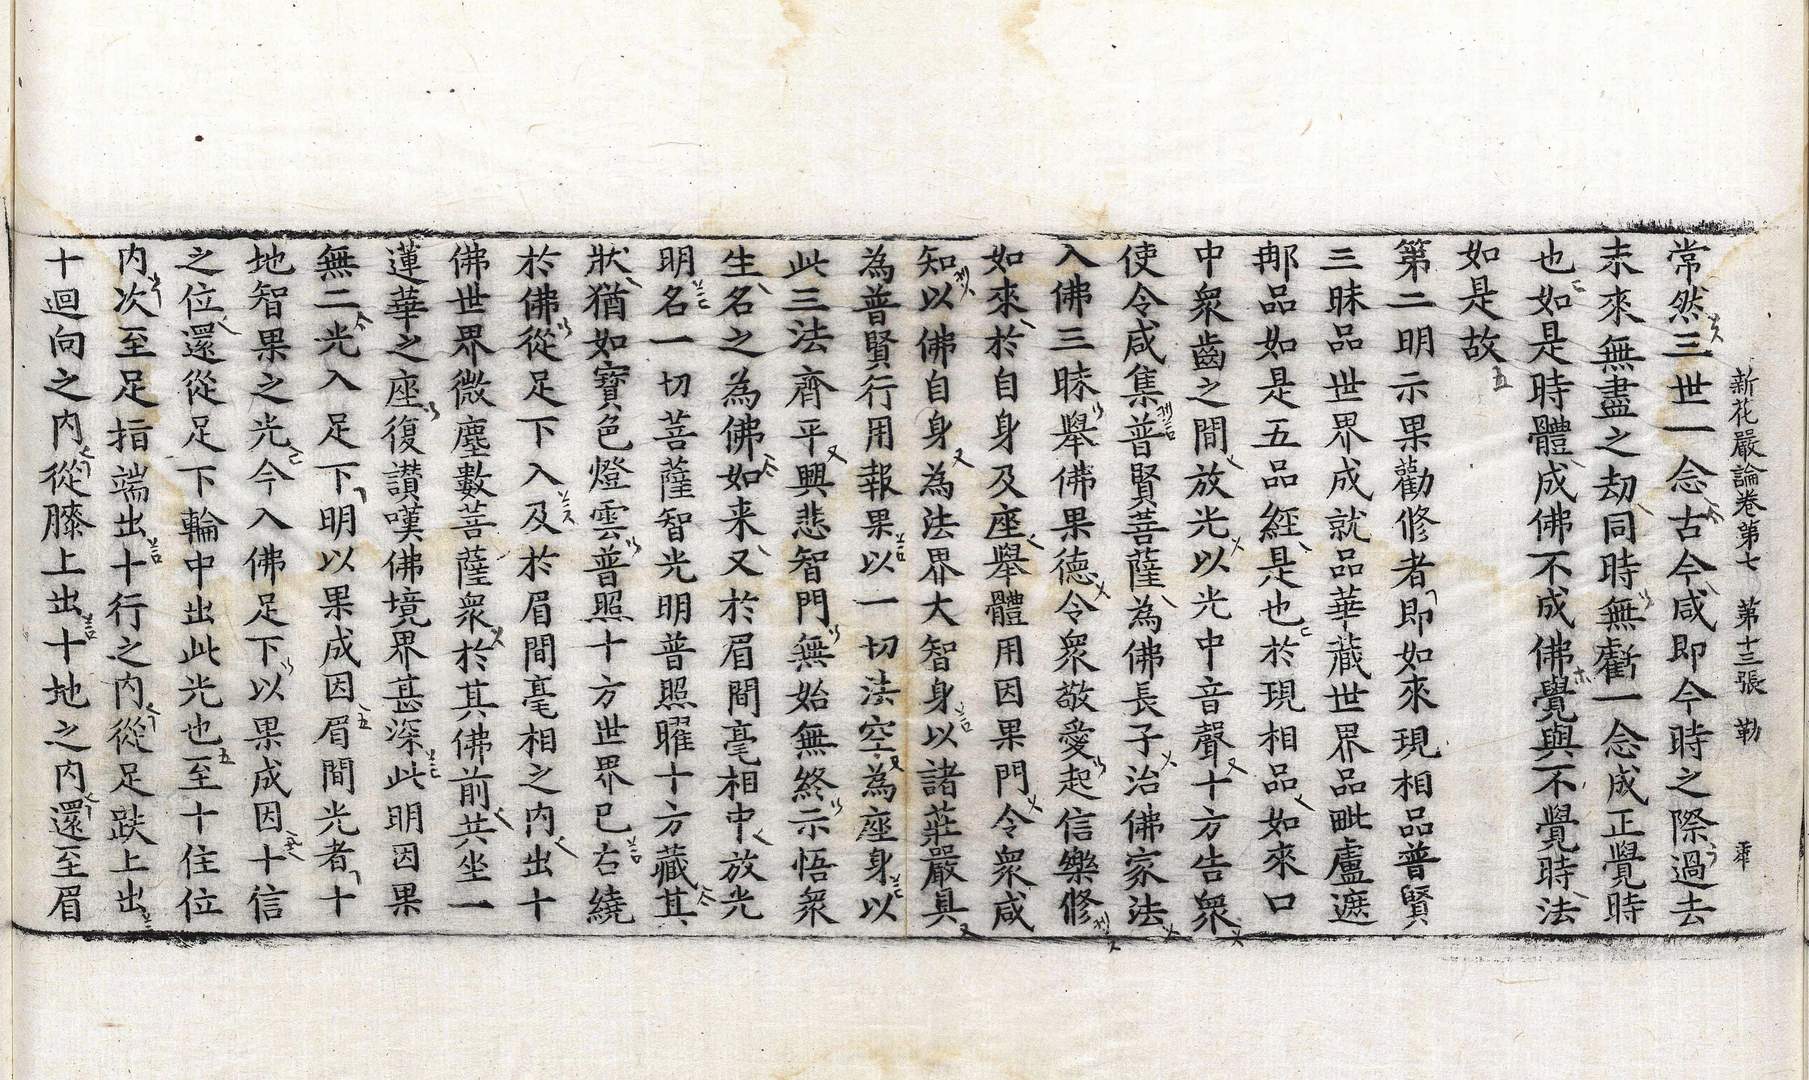 新花嚴論卷第七　第十三張　勒
常然三世一念古今咸即今時之際過去
未來無盡之劫同時無虧一念成正覺時
也如是時體成佛不成佛覺與不覺時法
如是故
第二明示果勸修者即如來現相品普賢
三昧品世界成就品華藏世界品毗盧遮
那品如是五品經是也於現相品如來口
中衆齒之間放光以光中音聲十方告衆
使令咸集普賢菩薩為佛長子治佛家法
入佛三昧舉佛果德令衆敬愛起信樂修
如來於自身及座舉體用因果門令衆咸
知以佛自身為法界大智身以諸莊嚴具
為普賢行用報果以一切法空為座身以
此三法齊平興悲智門無始無終示悟衆
生名之為佛如来又於眉間毫相中放光
明名一切菩薩智光明普照曜十方藏其
狀猶如寶色燈雲普照十方世界已右繞
於佛從足下入及於眉間毫相之内出十
佛世界微塵數菩薩衆於其佛前共坐一
蓮華之座復讃嘆佛境界甚深此明因果
無二光入足下明以果成因眉間光者十
地智果之光今入佛足下以果成因十信
之位還從足下輪中出此光也至十住位
内次至足指端出十行之内從足趺上出
十迴向之内從膝上出十地之内還至眉